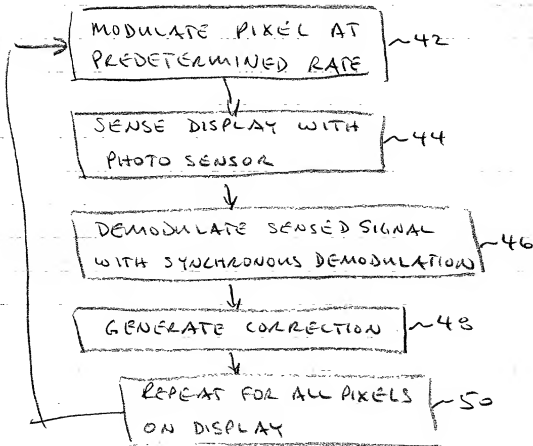 MODULATE PIXEL AT
PREDETERMINED RATE
~42
SENSE DISPLAY WITH
PHOTO SENSOR
~44
DEMODULATE SENSED SIGNAL
WITH SYNCHRONOUS DEMODULATION
~46
GENERATE CORRECTION
~48
REPEAT FOR ALL PIXELS
ON DISPLAY
~50